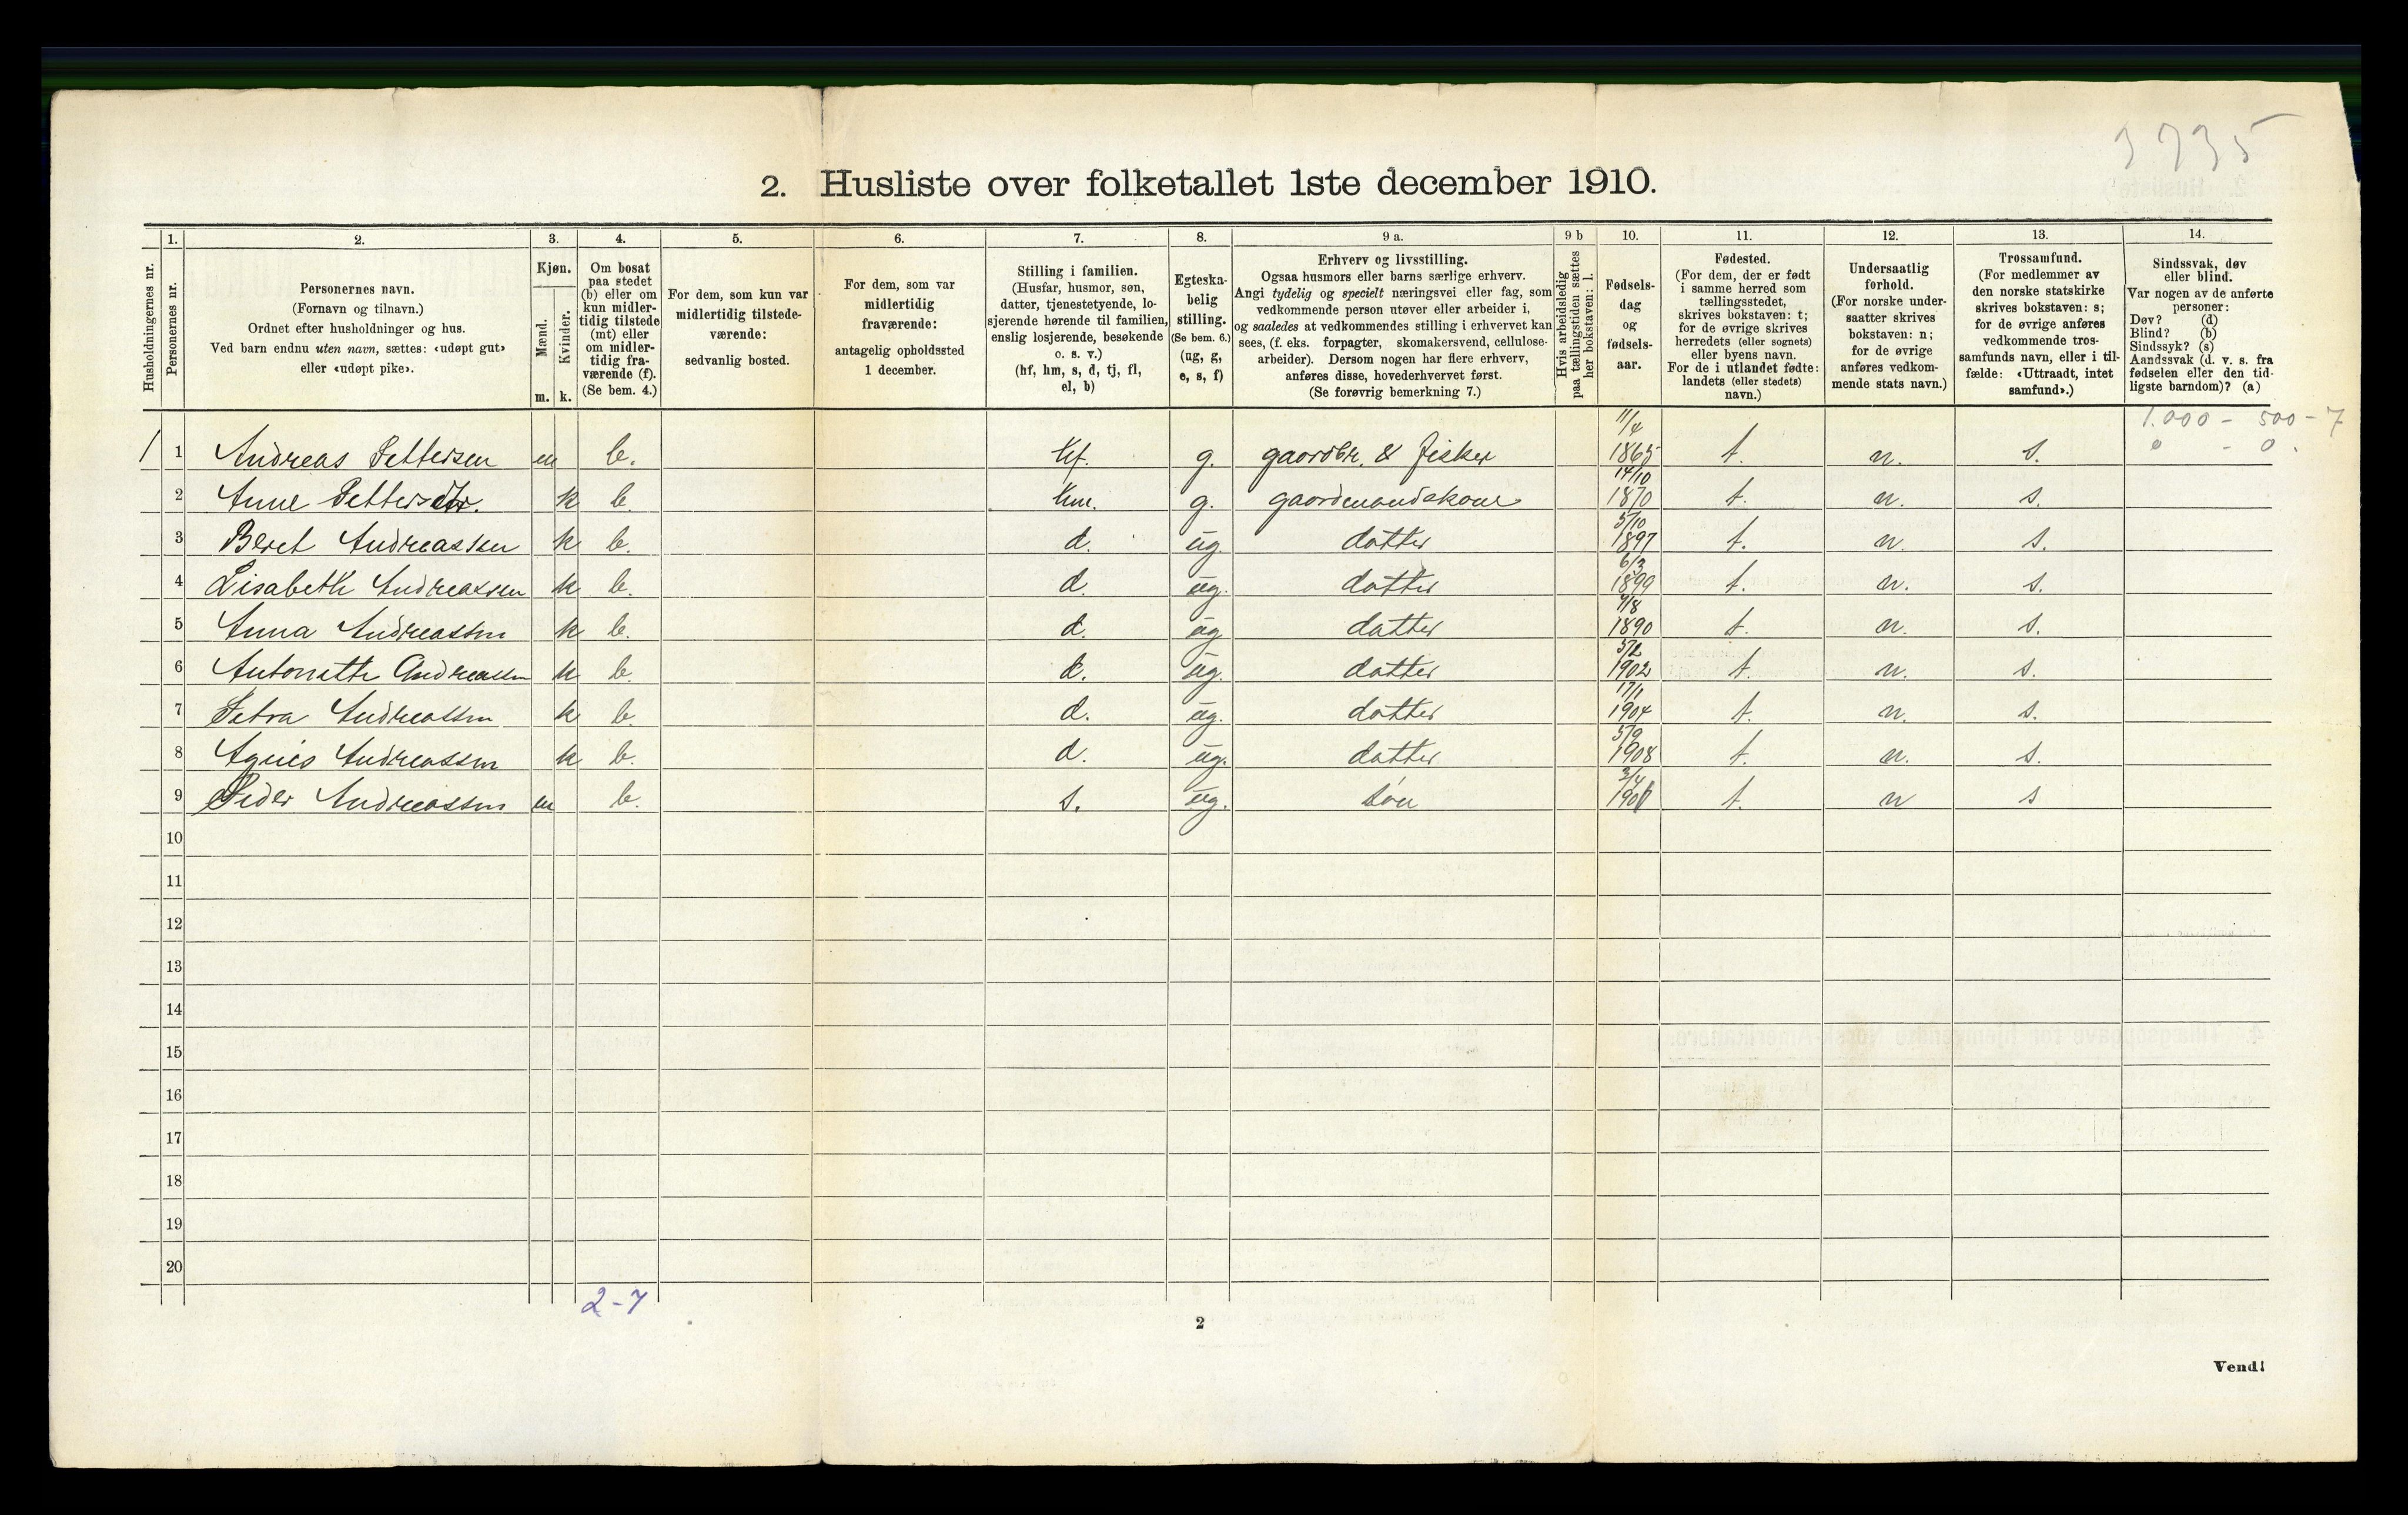 3735
2. Husliste over folketallet 1ste december 1910.
Husholdningernes nr.
1. Personernes nr.
2. Personernes navn.
(Fornavn og tilnavn.)
Ordnet efter husholdninger og hus.
Ved barn endnu uten navn, sættes: «udøpt gut»
eller «udøpt pike».
3. Kjøn.
Mænd. m.
Kvinder. k.
4. Om bosat
paa stedet
(b) eller om
kun midler-
tidig tilstede
(mt) eller
om midler-
tidig fra-
værende (f).
(Se bem. 4.)
5. For dem, som kun var
midlertidig tilstede-
værende:
sedvanlig bosted.
6. For dem, som var
midlertidig
fraværende:
antagelig opholdssted
1 december.
7. Stilling i familien.
(Husfar, husmor, søn,
datter, tjenestetyende, lo-
sjerende hørende til familien,
enslig losjerende, besøkende
o. s. v.)
(hf, hm, s, d, tj, fl,
el, b)
8. Egteska-
belig
stilling.
(Se bem. 6.)
(ug, g,
e, s, f)
9 a. Erhverv og livsstilling.
Ogsaa husmors eller barns særlige erhverv.
Angi tydelig og specielt næringsvei eller fag, som
vedkommende person utøver eller arbeider i,
og saaledes at vedkommendes stilling i erhvervet kan
sees, (f. eks. forpagter, skomakersvend, cellulose-
arbeider). Dersom nogen har flere erhverv,
anføres disse, hovederhvervet først.
(Se forøvrig bemerkning 7.)
9 b Hvis arbeidsledig
paa tællingstiden sættes
her bokstaven: l.
10. Fødsels-
dag
og
fødsels-
aar.
11. Fødested.
(For dem, der er født
i samme herred som
tællingsstedet,
skrives bokstaven: t;
for de øvrige skrives
herredets (eller sognets)
eller byens navn.
For de i utlandet fødte:
landets (eller stedets)
navn.)
12. Undersaatlig
forhold.
(For norske under-
saatter skrives
bokstaven: n;
for de øvrige
anføres vedkom-
mende stats navn.)
13. Trossamfund.
(For medlemmer av
den norske statskirke
skrives bokstaven: s;
for de øvrige anføres
vedkommende tros-
samfunds navn, eller i til-
fælde: «Uttraadt, intet
samfund».)
14. Sindssvak, døv
eller blind.
Var nogen av de anførte
personer:
Døv? (d)
Blind? (b)
Sindssyk? (s)
Aandssvak (d. v. s. fra
fødselen eller den tid-
ligste barndom)? (a)
1.000 - 500 - 7
0 - 0.
1 1 Andreas Pettersen m b. hf. g. gaardbr. & fisker 11/4 1865 t. n. s.
2 Anne Pettersdtr. k b. hm. g. gaardmandskone 14/10 1870 t. n. s.
3 Beret Andreassen k b. d. ug. datter 5/10 1897 t. n. s.
4 Lisabeth Andreassen k b. d. ug. datter 6/3 1899 t. n. s.
5 Anna Andreassen k b. d. ug datter 4/8 1890 t. n. s.
6 Antonette Andreassen k b. d. ug. datter 5/2 1902 t. n. s.
7 Petra Andreassen k b. d. ug. datter 17/1 1904 t. n. s.
8 Agnes Andreassen k b. d. ug. datter 5/9 1908 t. n. s.
9 Peder Andreassen m b. s. ug. søn 3/4 1906 t. n s
10
11
12
13
14
15
16
17
18
19
20
2-7
2
Vend!